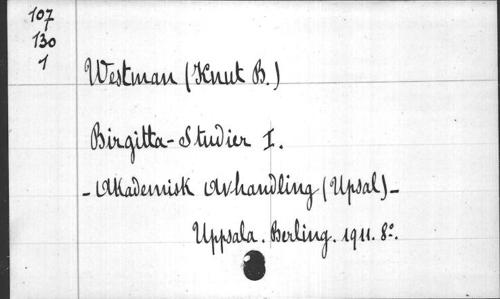 107
130
1
Westman (Knut B.)
Birgitta-Studier I.
- Akademisk Avhandling (Upsal) -
Uppsala. Berling. 1911. 8º.